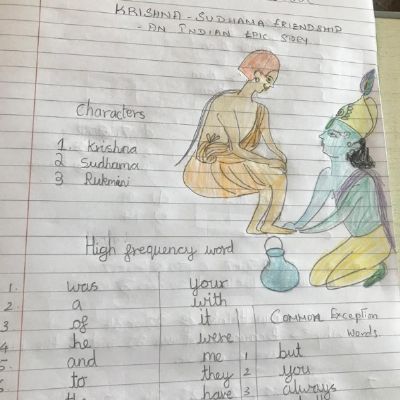 KRISHNA - SUDHAMA FRIENDSHIP
- AN INDIAN EPIC STORY
Characters
1. Krishna
2 Sudhama
3 Rukmini
High frequency word
1. was your
2. a with
3 of it COMMON Exception
4 he were words.
5. and me 1 but
6 to they 2 you
have 3 always